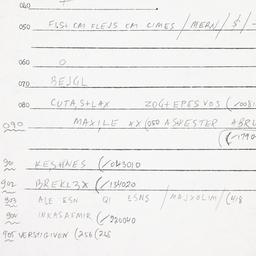 040
050 FLSL CM FLEJS CM CIMES / MERN / $ / -
060 O
070 BEJGL
080 CUTA, S+LAX ZOG+EPESVOS (/0081
090 MAXILE XX (050 ASWESTER ABRU
(/1790
901 KESHNES (/043010
902 BREKLZX (/134020
903 ALE ESN QI ESNS / MAJXOLIM / (418
904 INKASAFMIR (/920040
905 VERSTGIVEN (256 (248